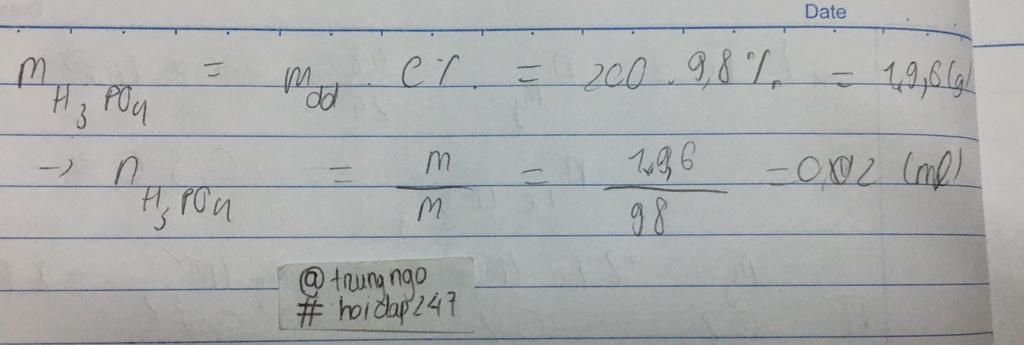 Date
m H₃PO₄ = mdd . C% = 200 . 9,8% = 19,6(g)
→ n H₃PO₄ = m/m = 19,6/98 = 0,02 (ml)
@trungngo
# hoidap247